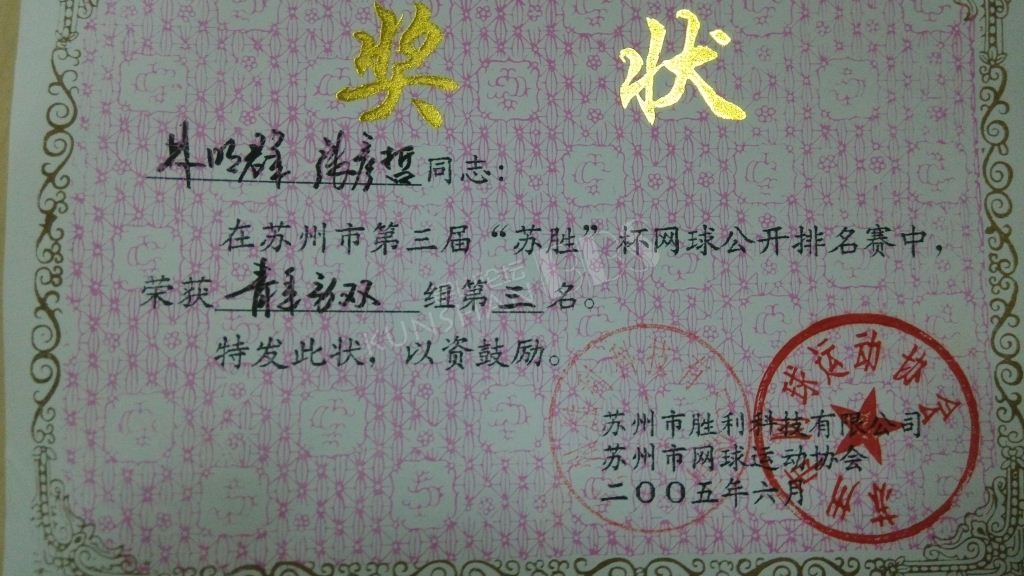 奖状
明群 张彦哲同志：
在苏州市第三届“苏胜”杯网球公开排名赛中，
荣获青年男双 组第三名。
特发此状，以资鼓励。
苏州市胜利科技有限公司
苏州市网球运动协会
二〇〇五年六月
苏州市网球运动协会
KUNSHAN